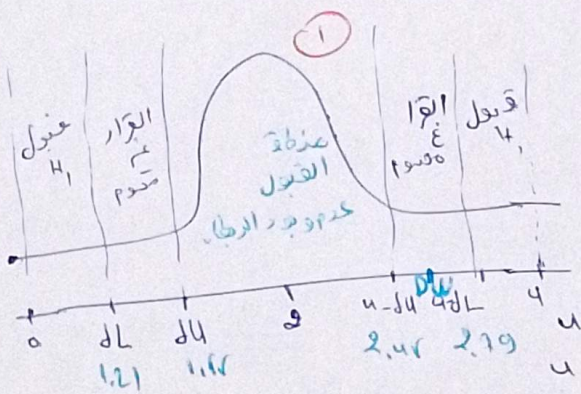 1
قبول
H₁
القرار
غ
محسوم
منطقة
القبول
عدم وجود ارتباط
القرار
غ
محسوم
قبول
H₁
0 dL dU 2 4-dU DW 4-dL 4
1.21 2.79
4
4